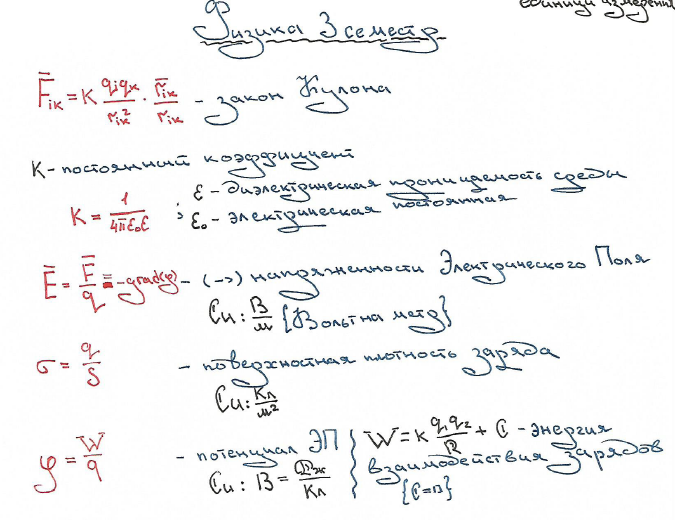 единицы измерения
Физика 3 семестр
F̄ᵢₖ = K qᵢqₖ/rᵢₖ² · r̄ᵢₖ/rᵢₖ - закон Кулона
K - постоянный коэффициент
K = 1/4πε₀ε ; ε - диэлектрическая проницаемость среды
ε₀ - электрическая постоянная
Ē = F̄/q = -grad(φ) - (->) напряженности Электрического Поля
Си: В/м {Вольт на метр}
σ = q/S - поверхностная плотность заряда
Си: Кл/м²
φ = W/q - потенциал ЭП
Си: В = Дж/Кл
W = K q₁q₂/R + C - энергия
взаимодействия зарядов